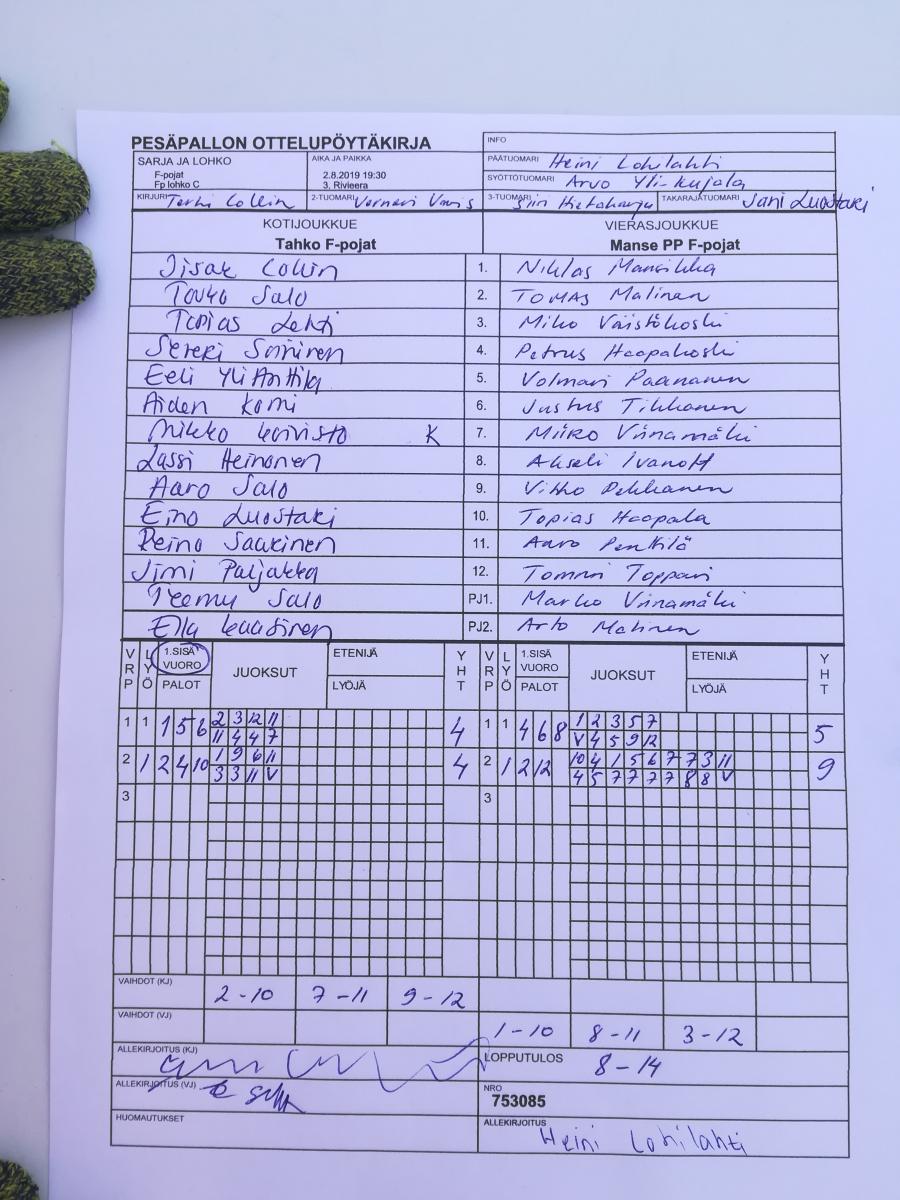 PESÄPALLON OTTELUPÖYTÄKIRJA
INFO
SARJA JA LOHKO
F-pojat
Fp lohko C
AIKA JA PAIKKA
2.8.2019 19:30
3. Rivieera
PÄÄTUOMARI Heini Lohilahti
SYÖTTÖTUOMARI Arvo Yli-Kujala
KIRJURI Terhi Collin 2-TUOMARI Verneri 3-TUOMARI Siiri Hietaharju TAKARAJATUOMARI Jani Luostari
KOTIJOUKKUE VIERASJOUKKUE
Tahko F-pojat Manse PP F-pojat
Iisak Collin 1. Niklas Mansikka
Touko Salo 2. TOMAS Malinen
Topias Lehti 3. Miko Väistökoski
Sereki Soininen 4. Petrus Haapakoski
Eeli Yli Anttila 5. Volmari Paananen
Aiden Komi 6. Justus Tikkanen
Mikko Koivisto K 7. Miiro Viinamäki
Lassi Heinonen 8. Akseli Ivanoff
Aaro Salo 9. Vikko Pekkanen
Eino Luostari 10. Topias Haapala
Reino Saarinen 11. Aaro Penttilä
Jimi Paljakka 12. Tommi Toppari
Teemu Salo PJ1. Marko Viinamäki
Ella PJ2. Arto Malinen
VRP LYÖ 1.SISÄ VUORO PALOT JUOKSUT ETENIJÄ LYÖJÄ YHT VRP LYÖ 1.SISÄ VUORO PALOT JUOKSUT ETENIJÄ LYÖJÄ YHT
1 1 1 5 6 2 3 12 11 4 1 1 4 6 8 1 2 3 5 7 5
11 4 4 7 V 4 5 9 12
2 1 2 4 10 1 9 6 11 4 2 1 2 12 10 4 1 5 6 7 7 3 11 9
3 3 11 V 4 5 7 7 7 7 8 8 V
3 3
VAIHDOT (KJ) 2-10 7-11 9-12
VAIHDOT (VJ) 1-10 8-11 3-12
ALLEKIRJOITUS (KJ)
LOPPUTULOS 8-14
ALLEKIRJOITUS (VJ)
NRO
753085
HUOMAUTUKSET
ALLEKIRJOITUS Heini Lohilahti